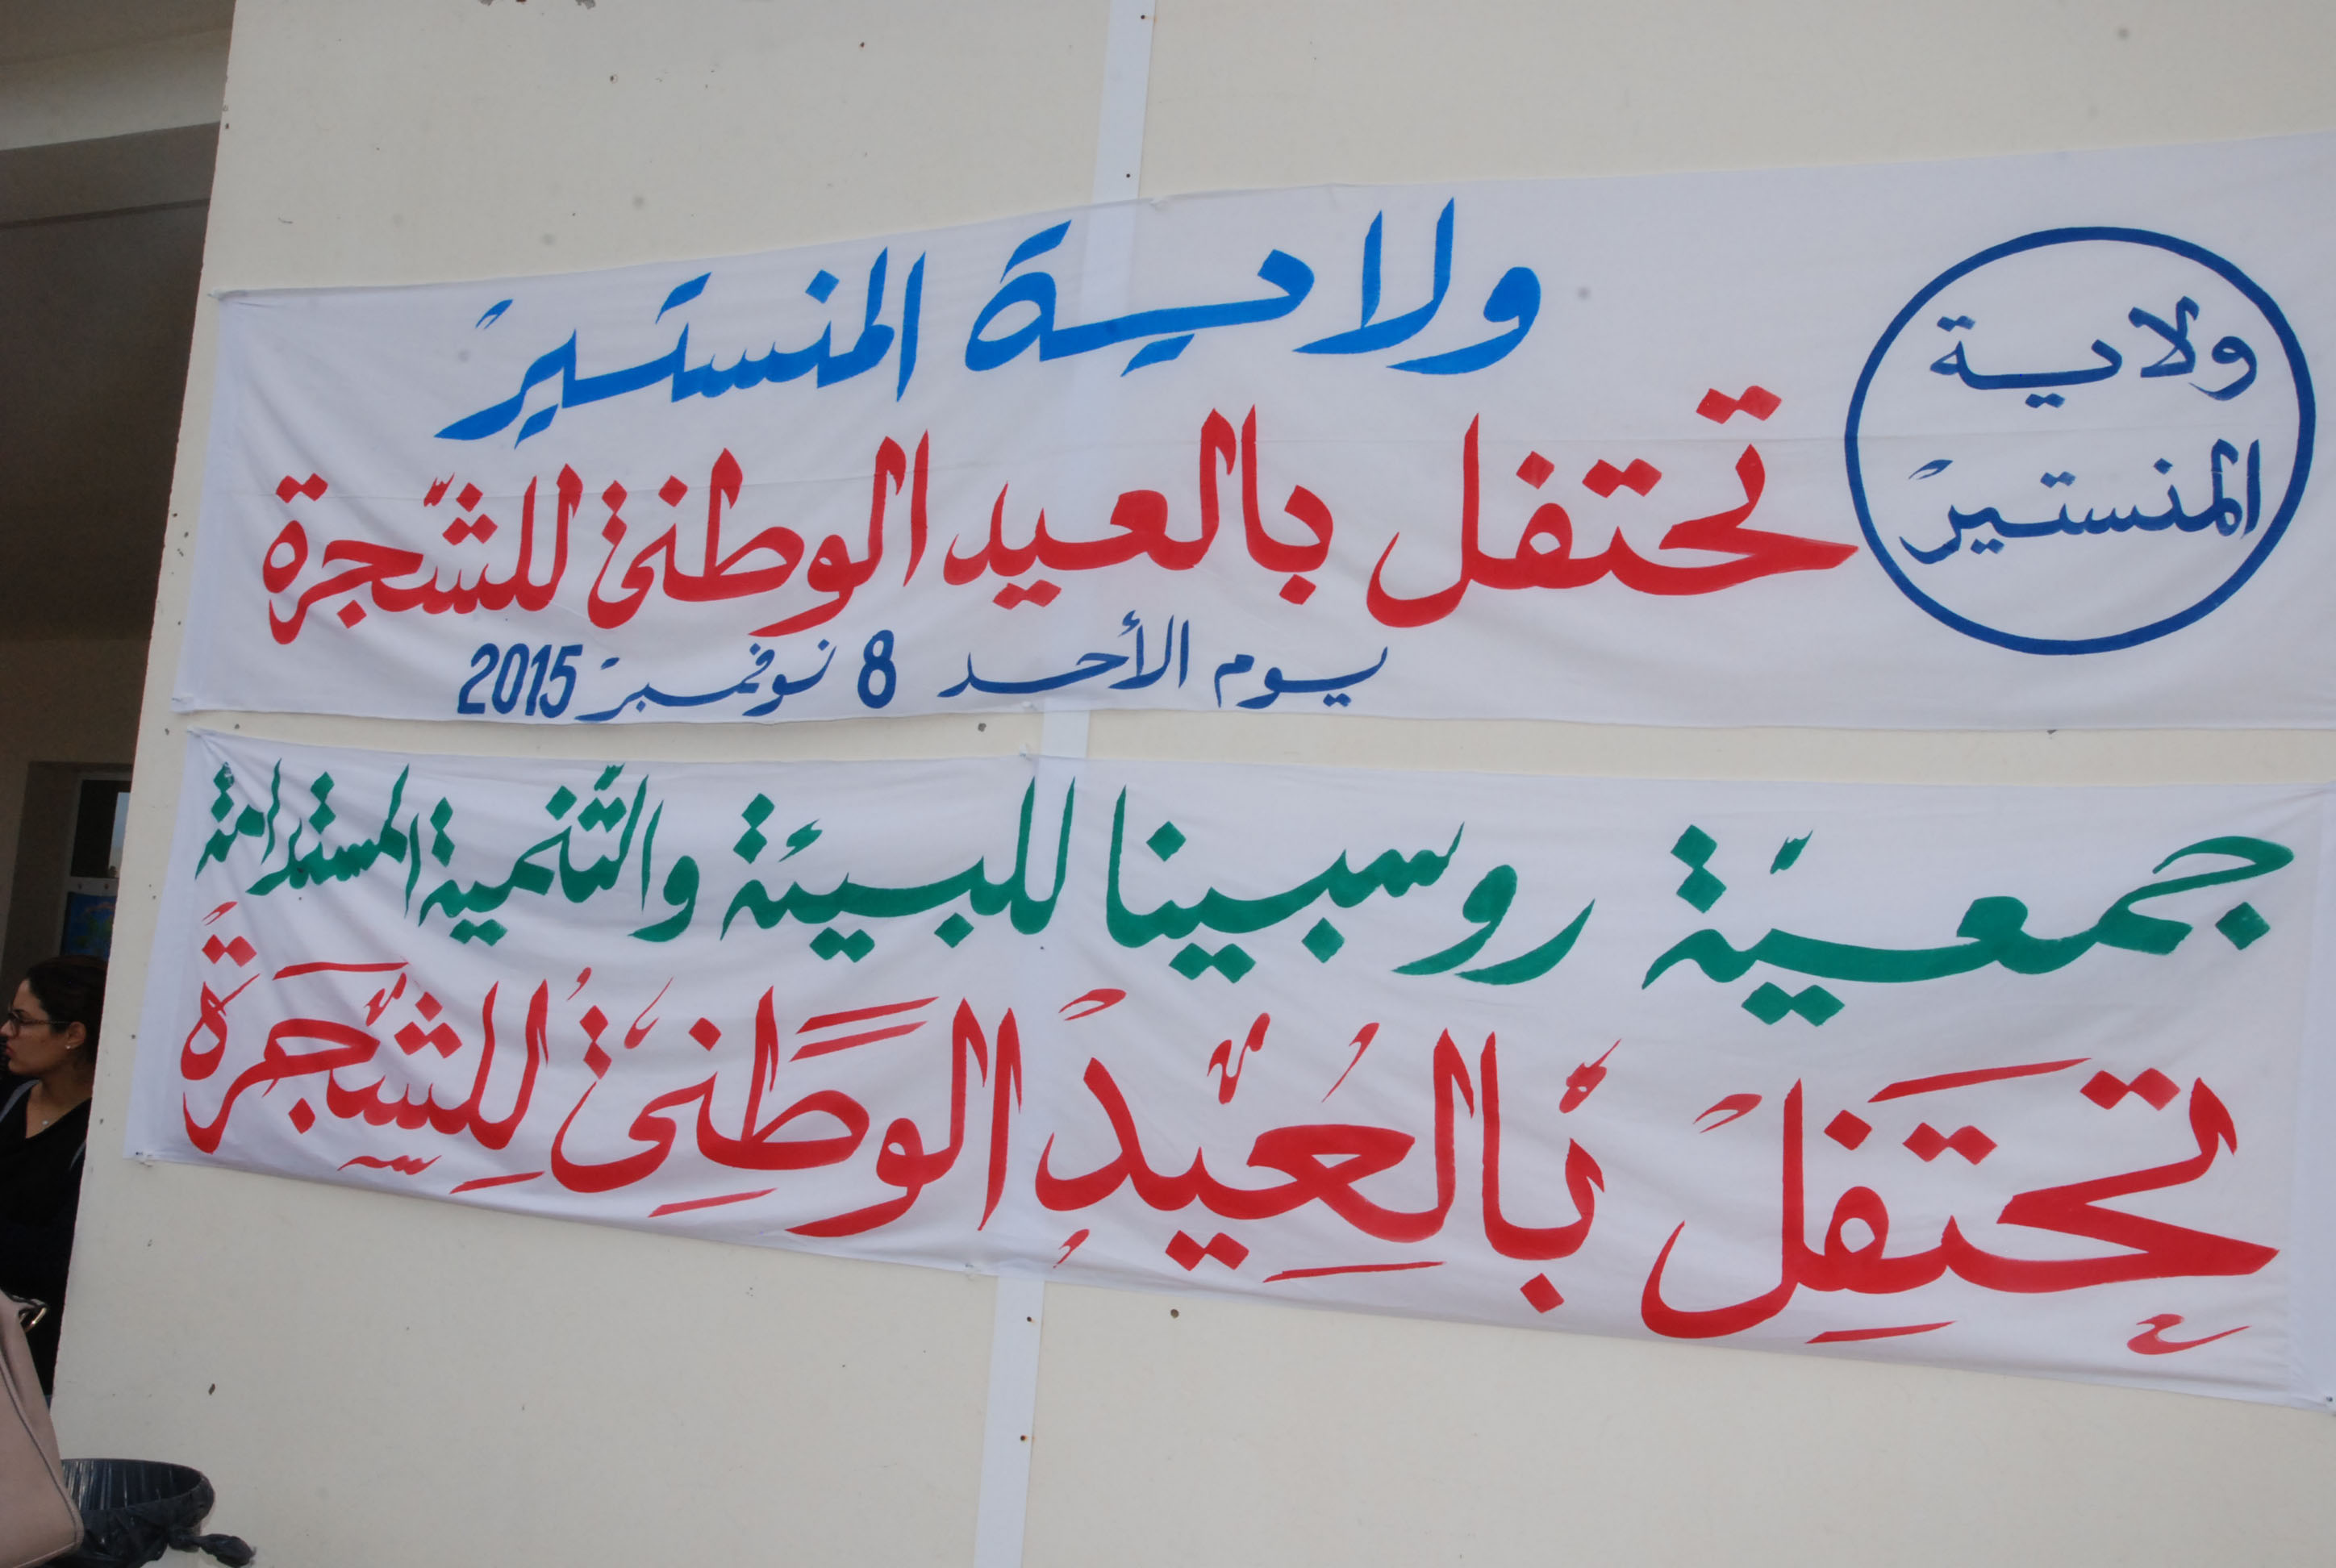 ولاية
المنستير
ولاية المنستير
تحتفل بالعيد الوطني للشّجرة
يوم الأحد 8 نوفمبر 2015
جمعيّة روسبينا للبيئة والتّنمية المستدامة
تحتفل بالعيد الوطني للشّجرة